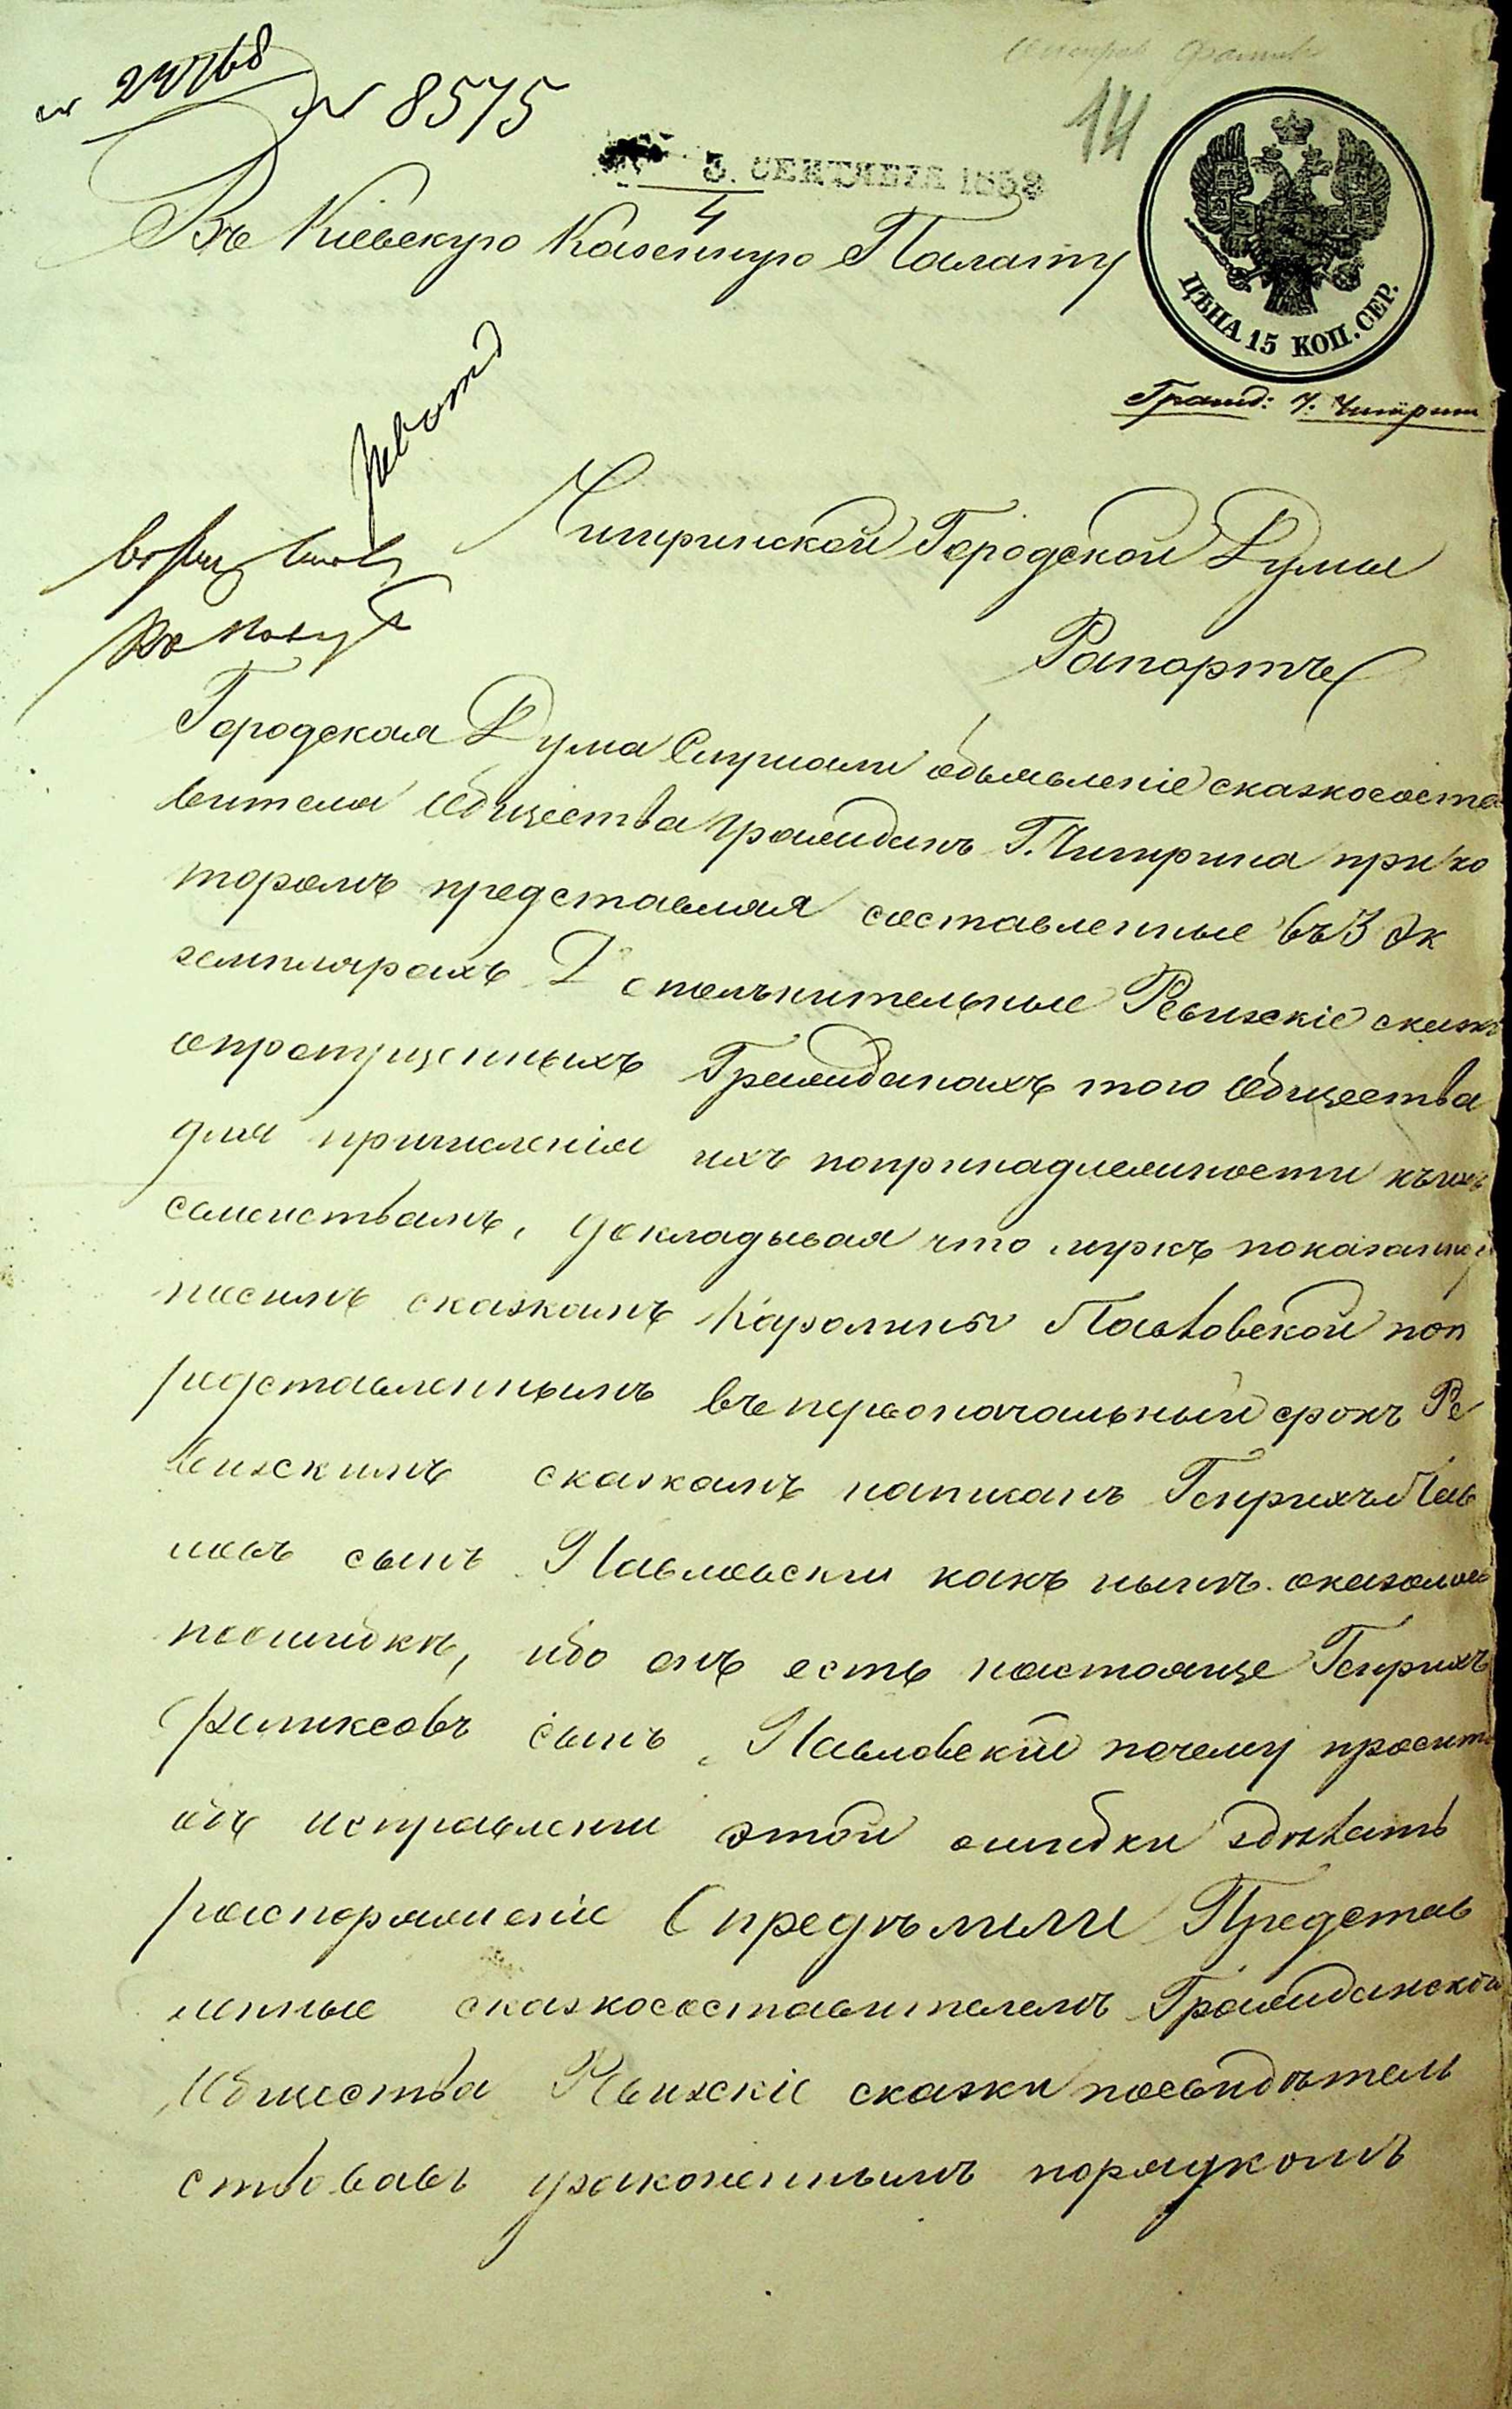 24768
№ 8575
14
3. СЕНТЯБРЯ 1858
4
Въ Кіевскую Казенную Палату
ЦѢНА 15 КОП. СЕР.
Гражд: г. Чигирин
Ревизіи
Чигиринской Городской Думы
Рапортъ
Городская Дума Слушали объявленіе сказкососта
вителя общества Гражданъ Г. Чигирина при ко
торомъ представляя составленные въ 3 эк
земплярахъ Дополнительные Ревизскіе сказки
опропущенныхъ Гражданахъ того общества
для причисленія ихъ попринадлежности къихъ
семействамъ, докладывая что мужъ показанной
посимъ сказкамъ Каролины Павловской поп
редставленнымъ въпервоначальный срокъ Ре
визскимъ сказкамъ написанъ Генрихъ Пав
ловъ сынъ Павловскій какъ нынѣ оказалось
поошибкѣ, ибо онъ есть настояще Генрихъ
Феликсовъ сынъ Павловскій почему проситъ
объ исправленіи этой ошибки здѣлать
распоряженіе Опредѣлили Представ
ленные сказкосоставителемъ Гражданскои
Общества Ревизскіе сказки посвидѣтель
ствовавъ узаконеннымъ порядкомъ